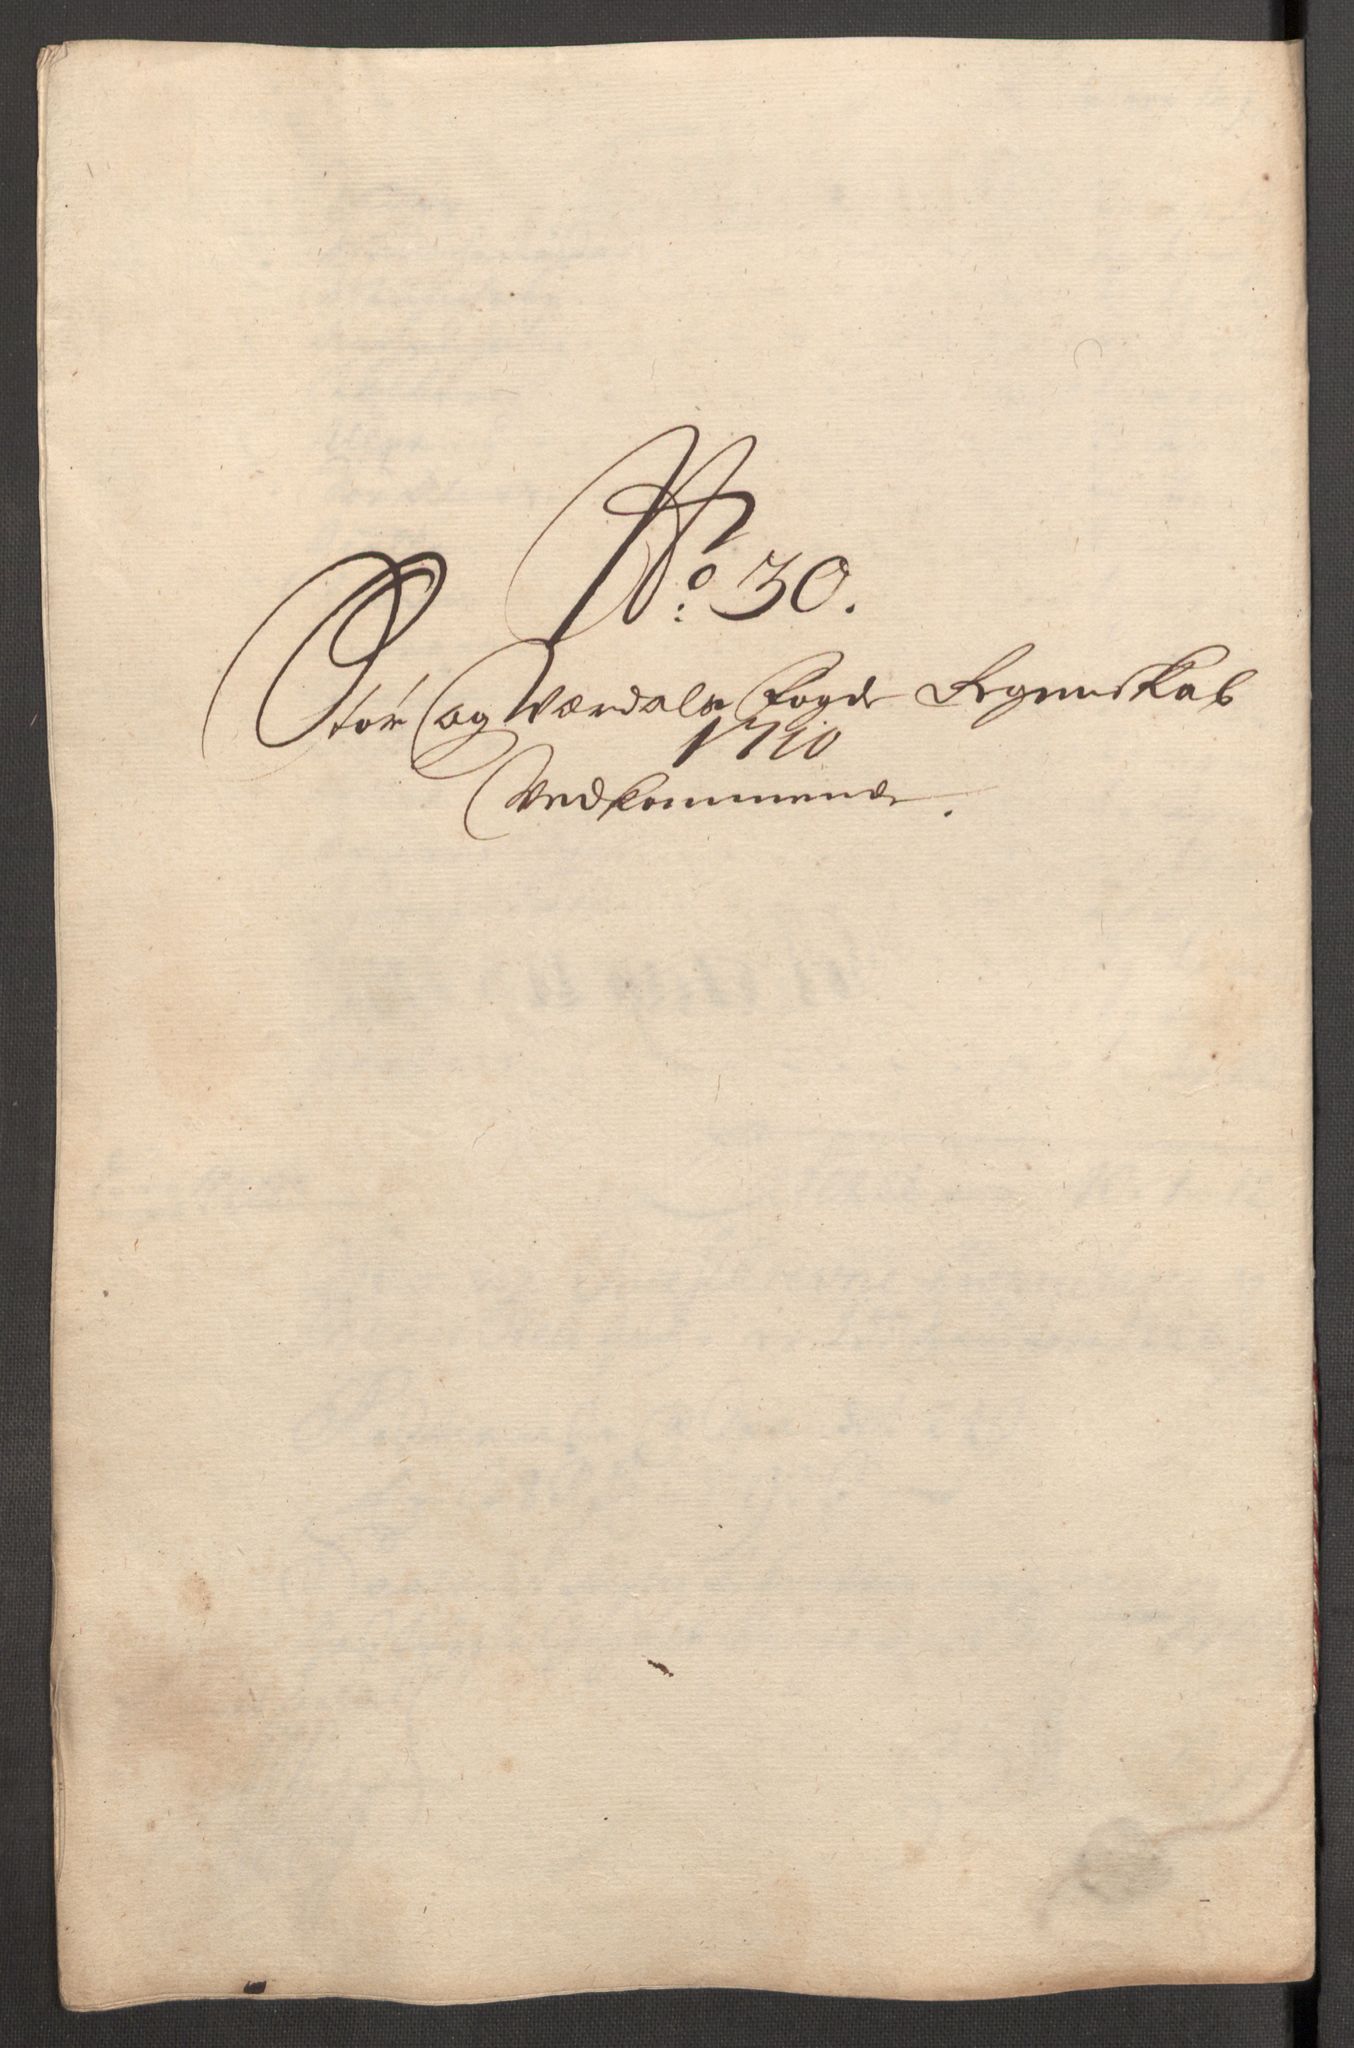 No: 30.
Stör og Værdals Fogde Regenskab
1710
Vedkommende.